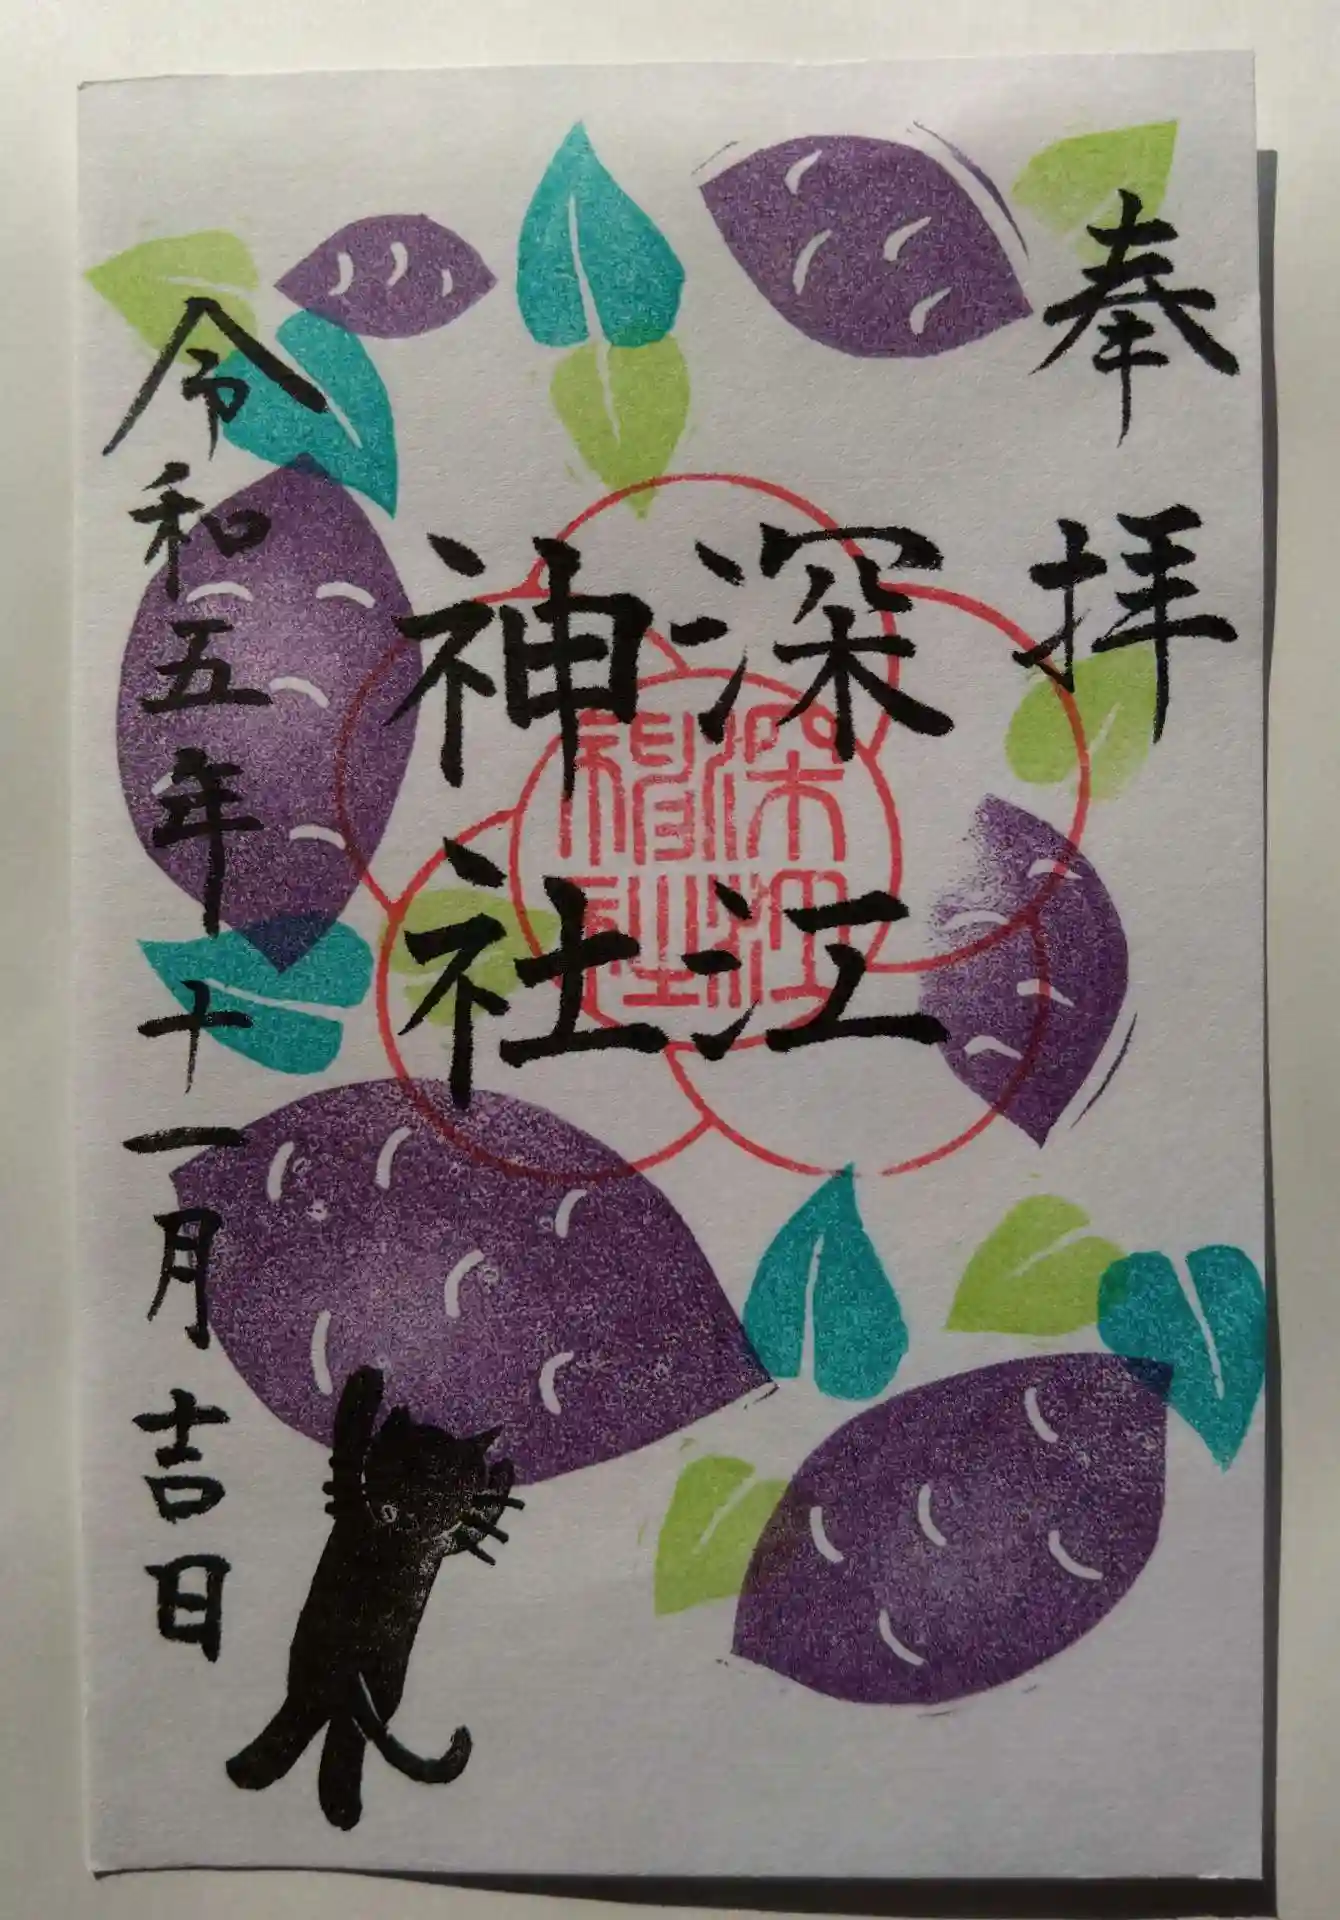 奉拝
深江
神社
深江
神社
令和五年十一月吉日